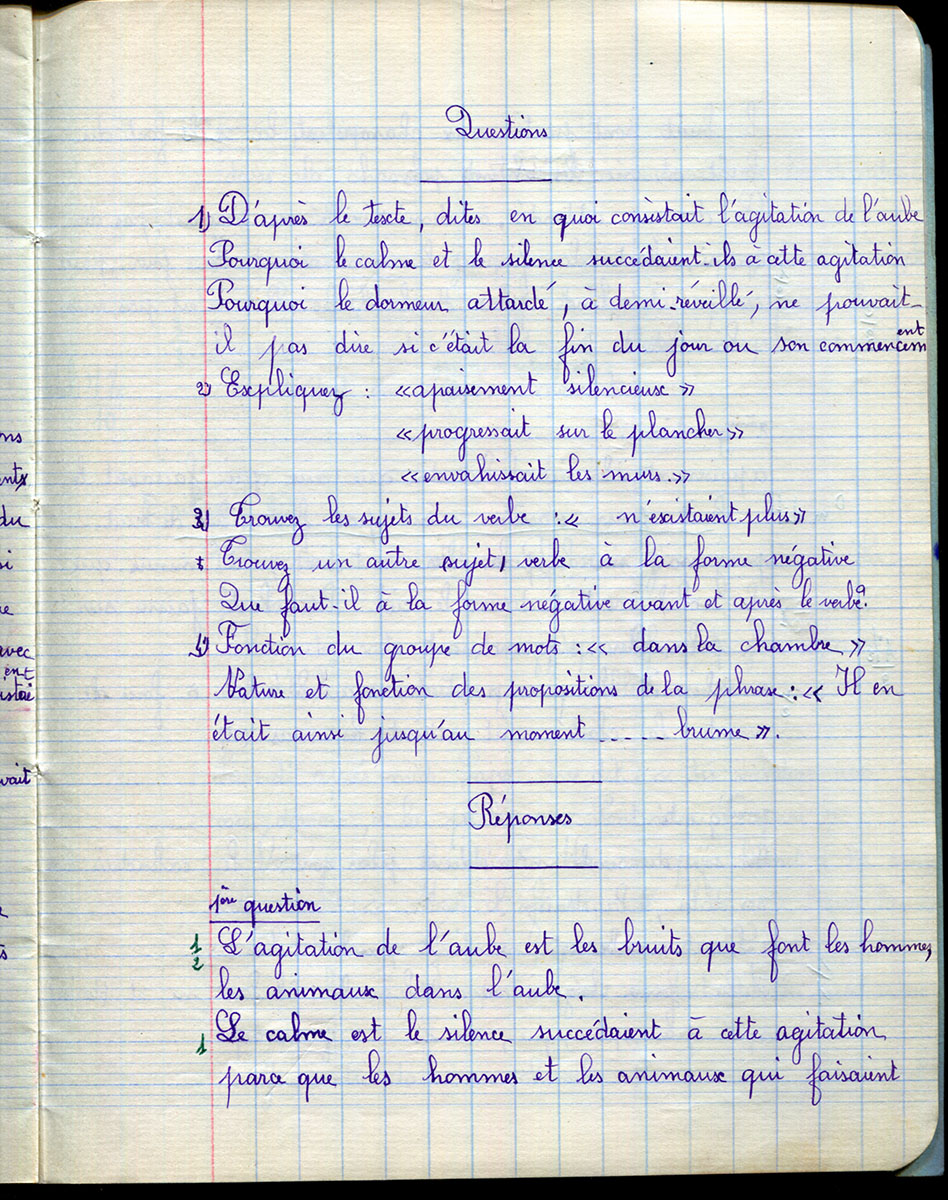 Questions
1) D'après le texte, dites en quoi consistait l'agitation de l'aube
Pourquoi le calme et le silence succédaient-ils à cette agitation
Pourquoi le dormeur attardé, à demi-réveillé, ne pouvait-
il pas dire si c'était la fin du jour ou son commencement
2) Expliquez : «apaisement silencieux»
«progressait sur le plancher»
«envahissait les murs.»
3) Trouvez les sujets du verbe : « n'existaient plus»
Trouvez un autre sujet, verbe à la forme négative
Que faut-il à la forme négative avant et après le verbe?
Fonction du groupe de mots : « dans la chambre »
Nature et fonction des propositions de la phrase : « Il en
était ainsi jusqu'au moment ..... brume ».
Réponses
1ère question
1
2
L'agitation de l'aube est les bruits que font les hommes,
les animaux dans l'aube.
Le calme est le silence succédaient à cette agitation
1
parce que les hommes et les animaux qui faisaient
ns
du
avec
vait